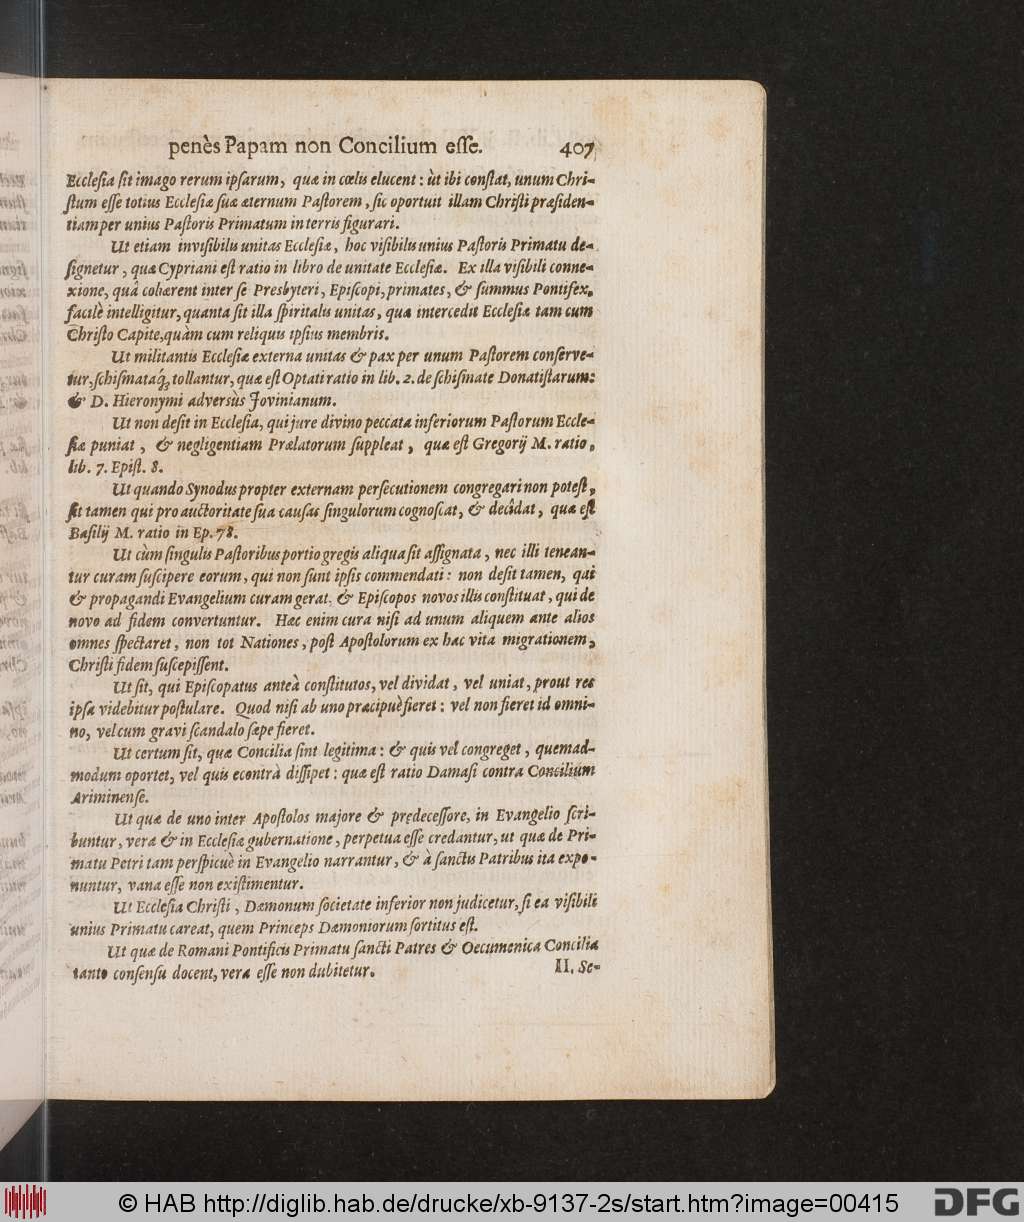 penès Papam non Concilium eſſe. 407
Eccleſia ſit imago rerum ipſarum, quæ in cœlis elucent: ùt ibi conſtat, unum Chri-
ſtum eſſe totius Eccleſiæ ſuæ æternum Paſtorem, ſic oportuit illam Chriſti præſiden-
tiam per unius Paſtoris Primatum in terris figurari.
Ut etiam inviſibilis unitas Eccleſiæ, hoc viſibilis unius Paſtoris Primatu de-
ſignetur, quæ Cypriani eſt ratio in libro de unitate Eccleſiæ. Ex illa viſibili conne-
xione, quâ cohærent inter ſe Presbyteri, Epiſcopi, primates, & ſummus Pontifex,
facilè intelligitur, quanta ſit illa ſpiritalis unitas, quæ intercedit Eccleſiæ tam cum
Chriſto Capite, quàm cum reliquis ipſius membris.
Ut militantis Eccleſiæ externa unitas & pax per unum Paſtorem conſerve-
tur, ſchiſmataq́; tollantur, quæ eſt Optati ratio in lib. 2. de ſchiſmate Donatiſtarum:
& D. Hieronymi adversùs Jovinianum.
Ut non deſit in Eccleſia, qui jure divino peccata inferiorum Paſtorum Eccle-
ſiæ puniat, & negligentiam Prælatorum ſuppleat, quæ eſt Gregorij M. ratio,
lib. 7. Epiſt. 8.
Ut quando Synodus propter externam perſecutionem congregari non poteſt,
ſit tamen qui pro auctoritate ſua cauſas ſingulorum cognoſcat, & decîdat, quæ eſt
Baſilij M. ratio in Ep. 78.
Ut cùm ſingulis Paſtoribus portio gregis aliqua ſit aſſignata, nec illi tenean-
tur curam ſuſcipere eorum, qui non ſunt ipſis commendati: non deſit tamen, qui
& propagandi Evangelium curam gerat, & Epiſcopos novos illis conſtituat, qui de
novo ad fidem convertuntur. Hæc enim cura niſi ad unum aliquem ante alios
omnes ſpectaret, non tot Nationes, poſt Apoſtolorum ex hac vita migrationem,
Chriſti fidem ſuſcepiſſent.
Ut ſit, qui Epiſcopatus anteà conſtitutos, vel dividat, vel uniat, prout res
ipſa videbitur poſtulare. Quod niſi ab uno præcipuè fieret: vel non fieret id omni-
no, vel cum gravi ſcandalo ſæpe fieret.
Ut certum ſit, quæ Concilia ſint legitima: & quis vel congreget, quemad-
modum oportet, vel quis econtrà diſſipet: quæ eſt ratio Damaſi contra Concilium
Ariminenſe.
Ut quæ de uno inter Apoſtolos majore & prędeceſſore, in Evangelio ſcri-
buntur, vera & in Eccleſiæ gubernatione, perpetua eſſe credantur, ut quæ de Pri-
matu Petri tam perſpicuè in Evangelio narrantur, & à ſanctis Patribus ita expo-
nuntur, vana eſſe non exiſtimentur.
Ut Eccleſia Chriſti, Dæmonum ſocietate inferior non judicetur, ſi ea viſibili
unius Primatu careat, quem Princeps Dæmoniorum ſortitus eſt.
Ut quæ de Romani Pontificis Primatu ſancti Patres & Oecumenica Concilia
tanto conſenſu docent, vera eſſe non dubitetur.
II. Se-
© HAB http://diglib.hab.de/drucke/xb-9137-2s/start.htm?image=00415
DFG